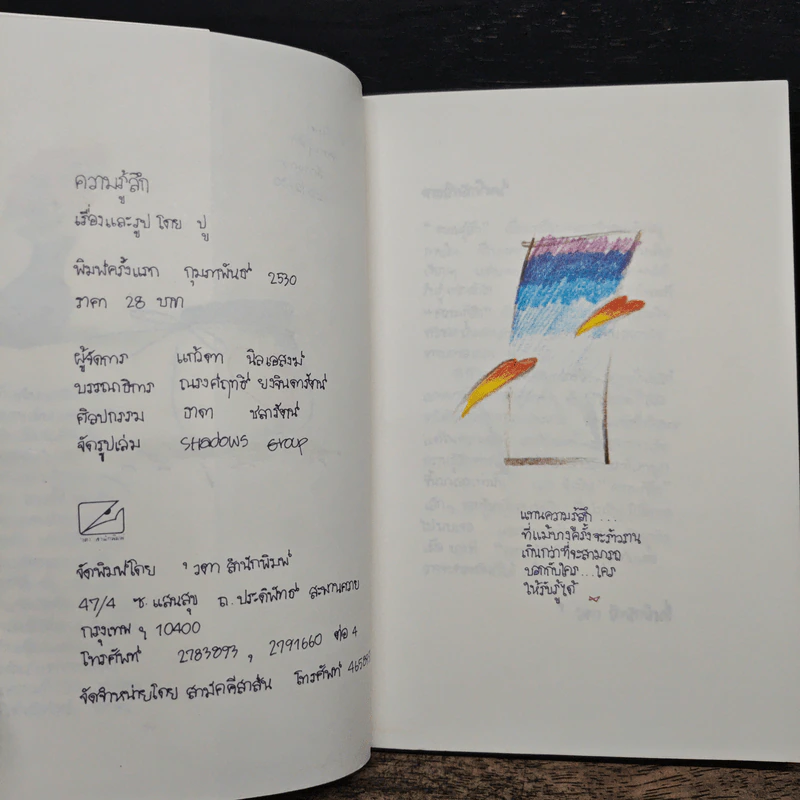 ความรู้สึก
เรื่องและรูป โดย ปู
พิมพ์ครั้งแรก กุมภาพันธ์ 2530
ราคา 28 บาท
ผู้จัดการ แก้วตา
บรรณาธิการ ณรงค์ฤทธิ์ ยงจินดารัตน์
ศิลปกรรม ธาดา ชลารัตน์
จัดรูปเล่ม SHadows Group
จัดพิมพ์โดย วดา สำนักพิมพ์
47/4 ซ.แสนสุข ถ.ประดิพัทธ์ สะพานควาย
กรุงเทพ ฯ 10400
โทรศัพท์ 2783893 , 2791660 ต่อ 4
จัดจำหน่ายโดย สามัคคีสาส์น โทรศัพท์
แทนความรู้สึก ...
ที่แม้บางครั้งจะร้าวราน
เกินกว่าที่จะสามารถ
บอกกับใคร...ใคร
ให้รับรู้ได้